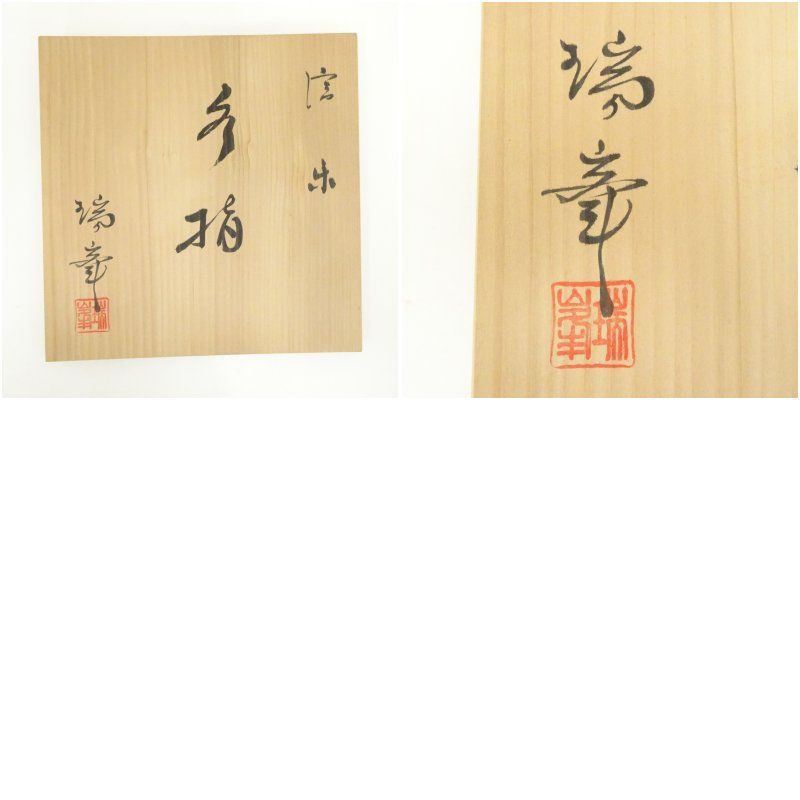 信楽
水指
瑞峯
瑞峯
瑞峯
瑞峯